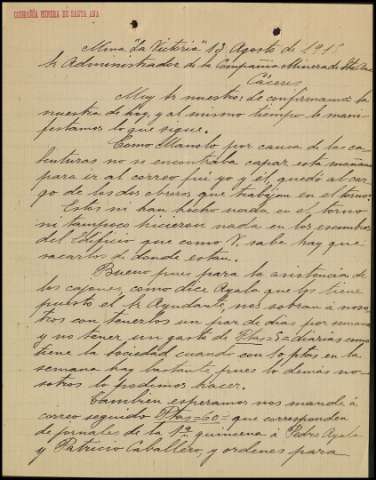 COMPAÑÍA MINERA DE SANTA ANA
Mina "La Victoria" 13 Agosto de 191
Sr Administrador de la Compañia Minera de Sta Ana
Cáceres
Muy Sr nuestro: de confirmamos la
nuestra de hoy, y al mismo tiempo le mani-
festamos lo que sigue.
Como Manolo por causa de las ca-
lenturas no se encontraba capaz esta mañana
para ir al correo fui yo y el, quedó al car-
go de los dos obreros que trabajan en el torno.
Estos ni han hecho nada en el torno
ni tampoco hicieron nada en los escombros
del Edificio que como V. sabe hay que
sacarlos de donde estan.
Bueno pues para la asistencia de
los cajones, como dice Ayala que los tiene
puesto el Sr Ayudante, nos sobran á noso-
tros con tenerlos un par de dias por semana
y no tener un gasto de Ptas = 5 = diarias como
tiene la Sociedad cuando con 10 ptas en la
semana hay bastante, pues lo demás no-
sotros lo podemos hacer.
Tambien esperamos nos mande á
correo seguido Ptas = 60 = que corresponden
de jornales de la 1ª quincena á Pedro Ayala
y Patricio Caballero, y ordenes para